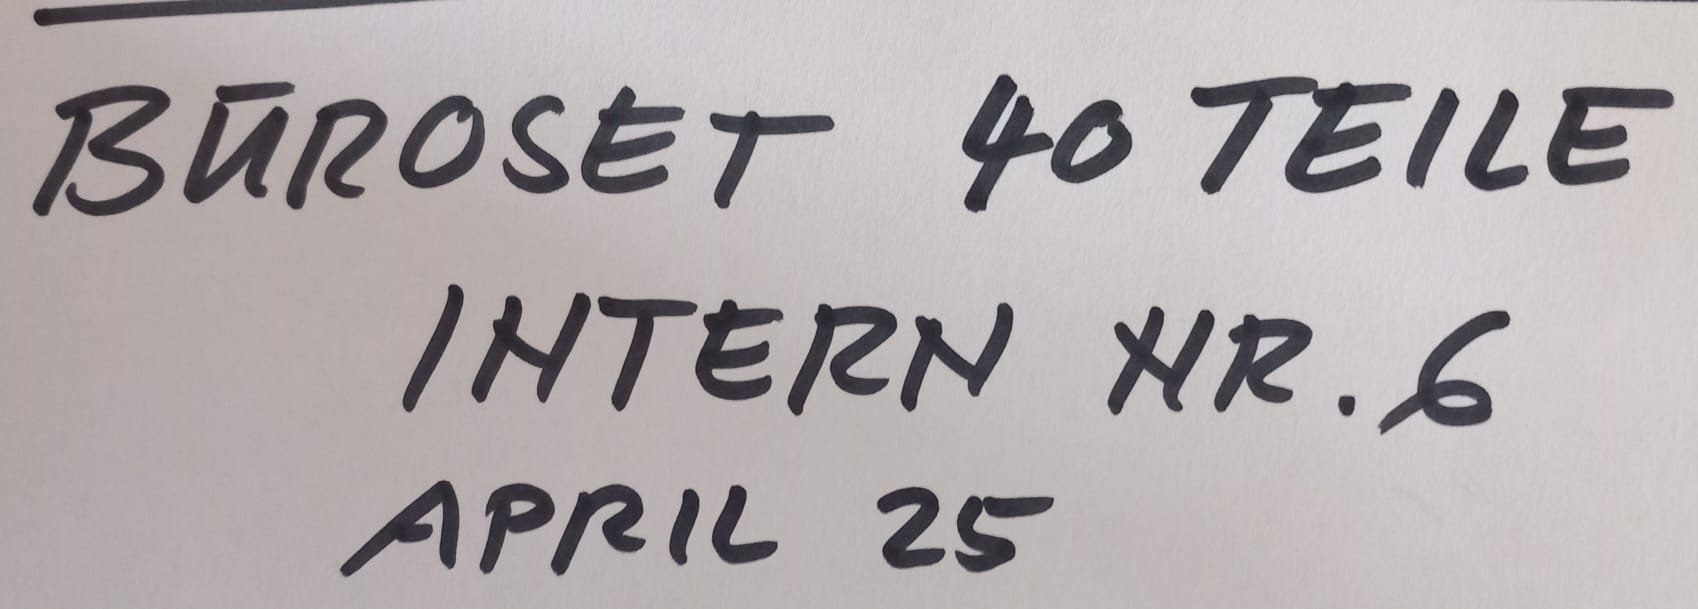 BÜROSET 40 TEILE
INTERN NR. 6
APRIL 25